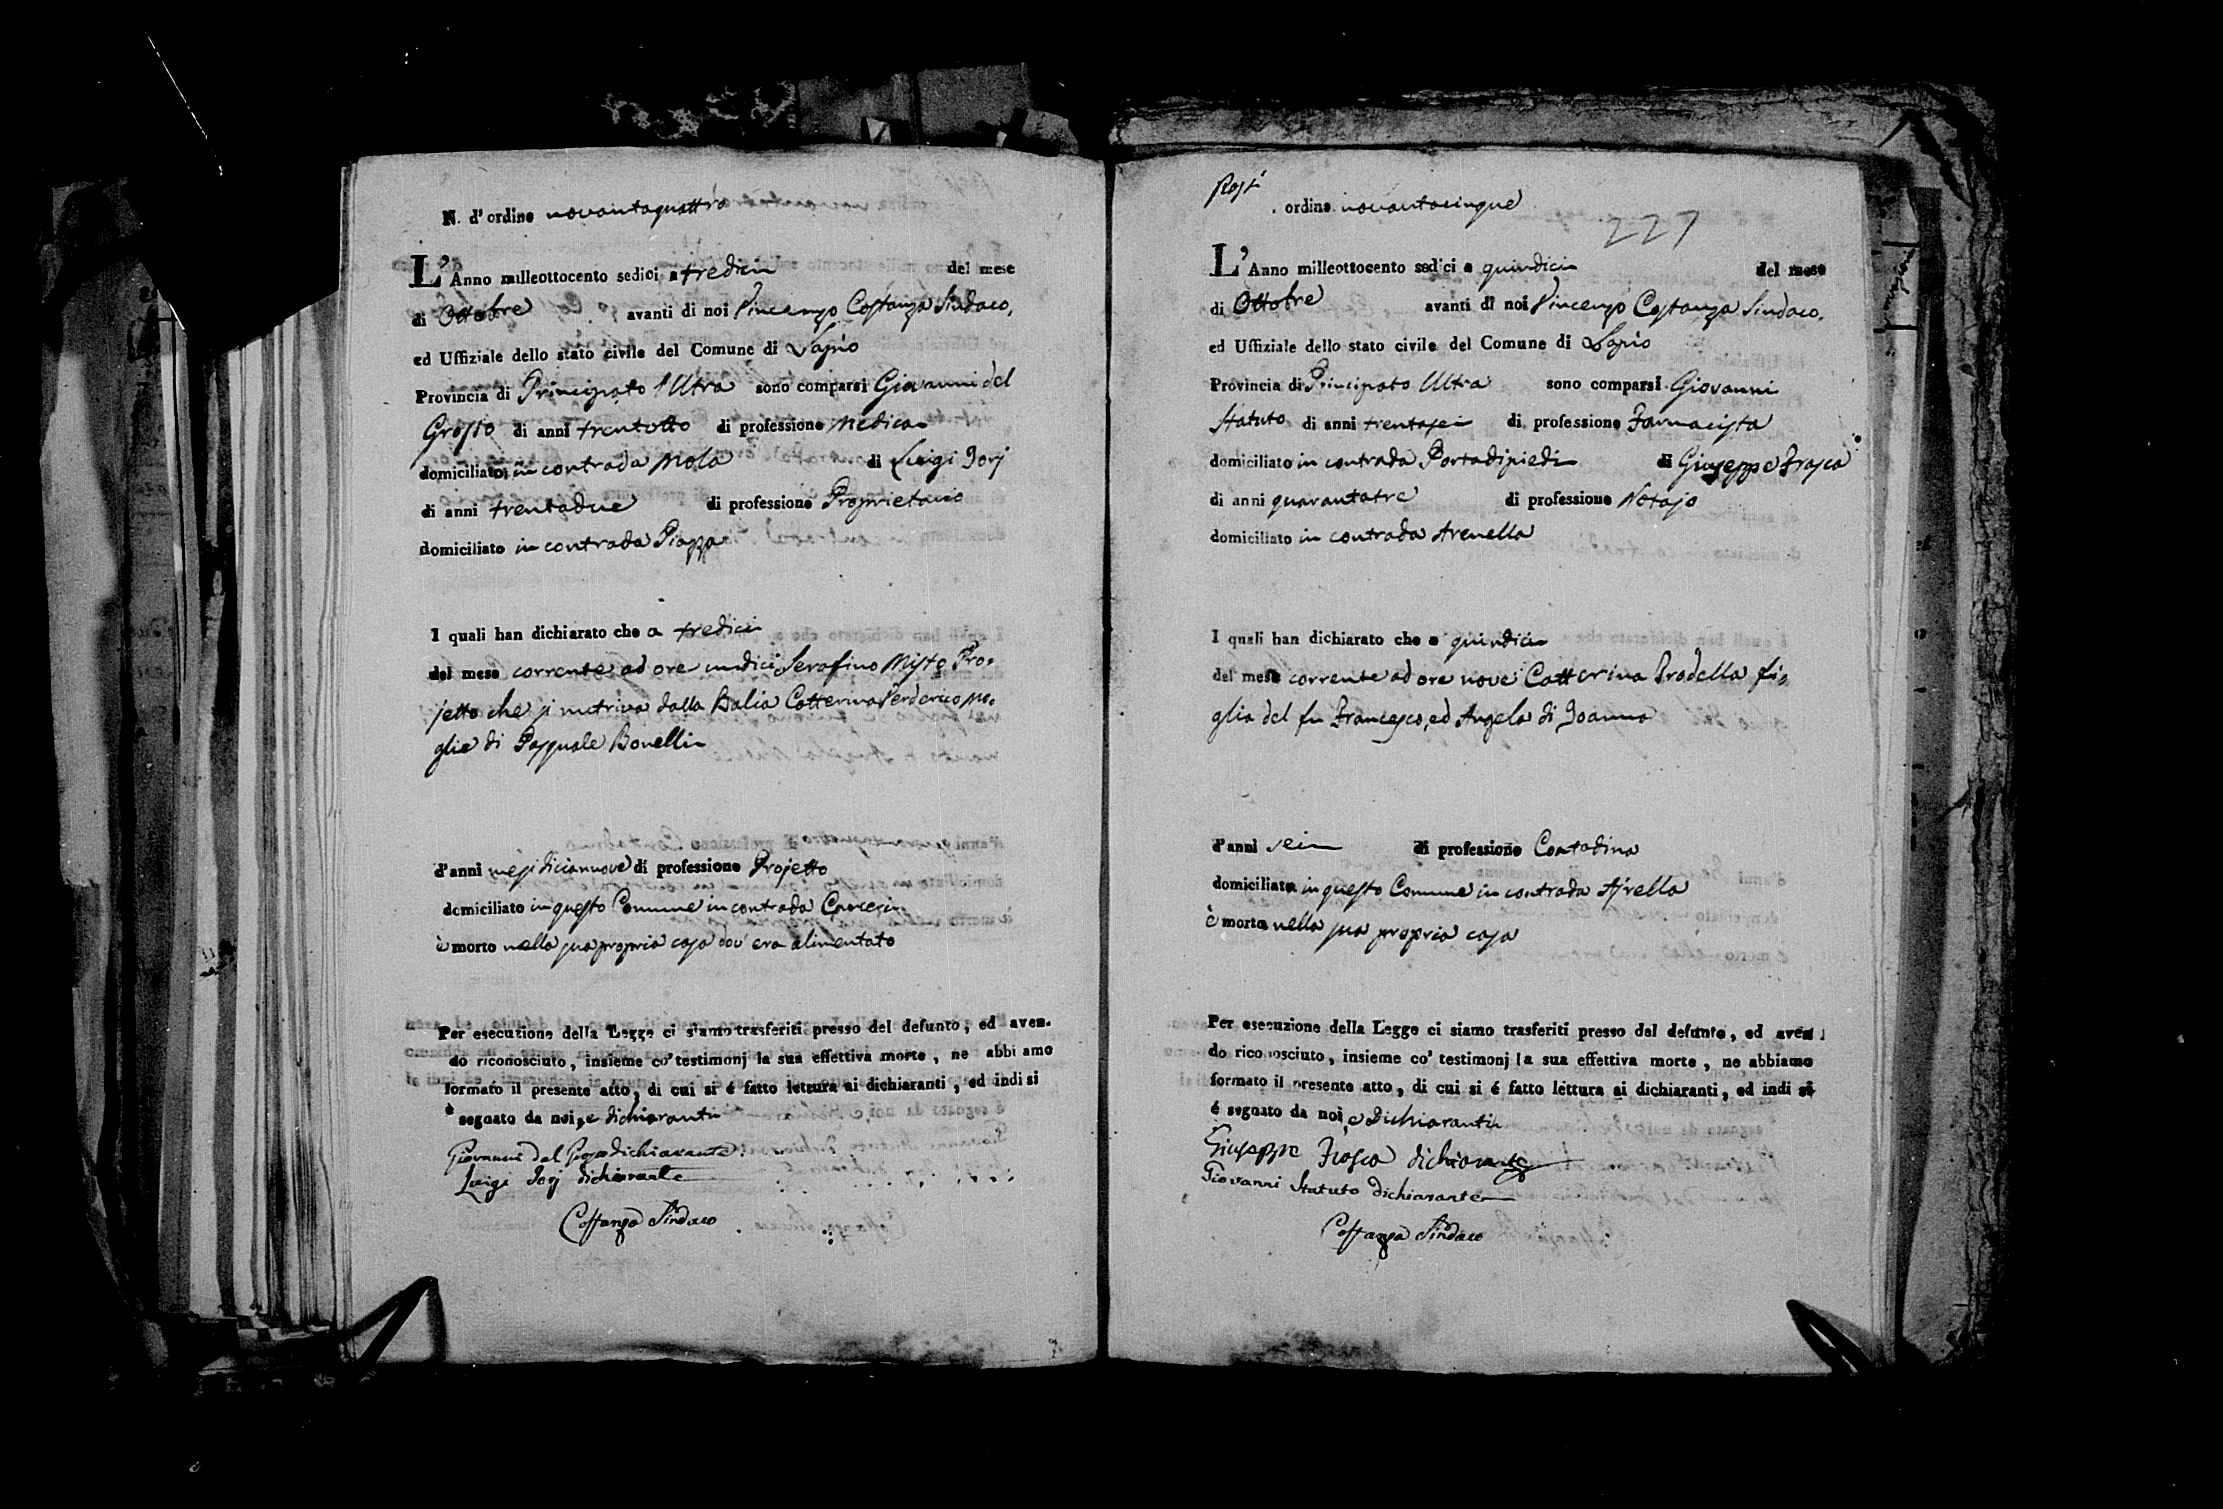 N. d'ordine novantaquattro
L'Anno milleottocento sedici a tredici del mese
di Ottobre avanti di noi Vincenzo Costanza Sindaco,
ed Uffiziale dello stato civile del Comune di Lapio
Provincia di Principato Ultra sono comparsi Giovanni del
Grosso di anni trentotto di professione Medico
domiciliato in contrada Mola di Luigi Jorj
di anni trentadue di professione Proprietario
domiciliato in contrada Piazza
I quali han dichiarato che a tredici
del mese corrente ad ore undici Serafino Misto Pro=
jetto che si nutriva dalla Balia Catterina Perderico mo=
glie di Pasquale Bonelli
d'anni mesi diciannove di professione Projetto
domiciliato in questo Comune in contrada
è morto nella sua propria casa dov' era alimentato
Per esecuzione della Legge ci siamo trasferiti presso del defunto, ed aven-
do riconosciuto, insieme co' testimonj la sua effettiva morte, ne abbiamo
formato il presente atto, di cui si é fatto lettura ai dichiaranti, ed indi si
è segnato da noi, e dichiaranti
Giovanni del Grosso dichiarante
Luigi Jorj dichiarante
Costanza Sindaco
ordine novantacinque
227
L'Anno milleottocento sedici a quindici del mese
di Ottobre avanti di noi Vincenzo Costanza Sindaco,
ed Uffiziale dello stato civile del Comune di Lapio
Provincia di Principato Ultra sono comparsi Giovanni
Statuto di anni trentasei di professione Farmacista
domiciliato in contrada Portadipiedi di Giuseppe Frasca
di anni quarantatre di professione Notajo
domiciliato in contrada Arenella
I quali han dichiarato che a quindici
del mese corrente ad ore nove Catterina Brodella fi=
glia del fu Francesco, ed Angela di Joanna
d'anni sei di professione Contadina
domiciliata in questo Comune in contrada Ajrella
è morta nella sua propria casa
Per esecuzione della Legge ci siamo trasferiti presso del defunto, ed aven
do riconosciuto, insieme co' testimonj la sua effettiva morte, ne abbiamo
formato il presente atto, di cui si é fatto lettura ai dichiaranti, ed indi si
é segnato da noi, e Dichiaranti
Giuseppe Frasca dichiarante
Giovanni Statuto dichiarante
Costanza Sindaco